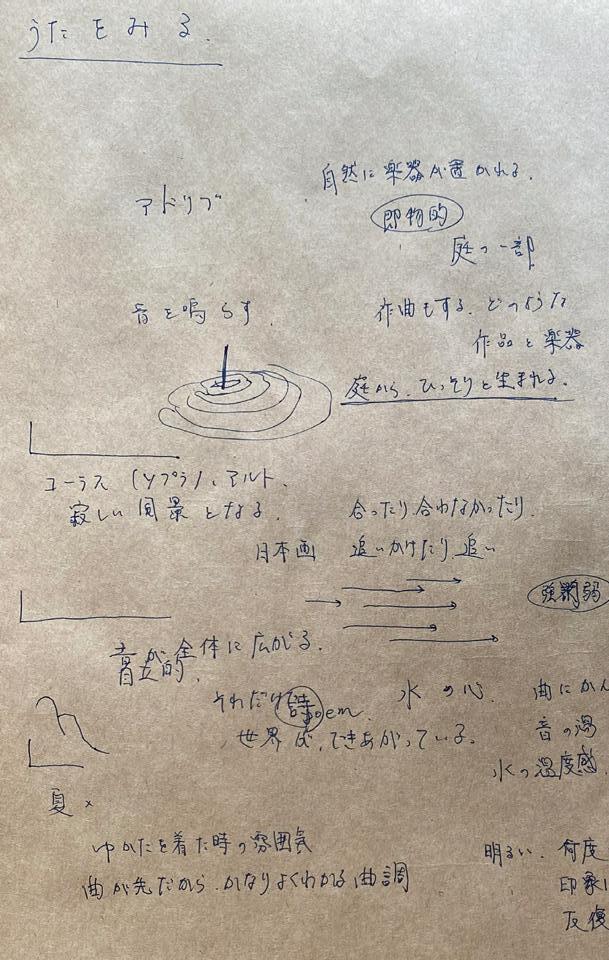 うたをみる.
自然に楽器が置かれる.
アドリブ
即物的
庭の一部
音を鳴らす.
作曲もする. どのような
作品と楽器
庭から、ひっそりと生まれる.
コーラス (ソプラノ、アルト、
寂しい風景となる.
合ったり、合わなかったり.
日本画 追いかけたり、追い
強弱
音が全体に広がる.
それだけで詩 poem.
世界は、できあがっている.
水の心.
曲にかん
音の温
水の温度感.
夏 ×
ゆかたを着た時の雰囲気
曲が先だから、かなりよくわかる曲調
明るい. 何度
印象に
反復